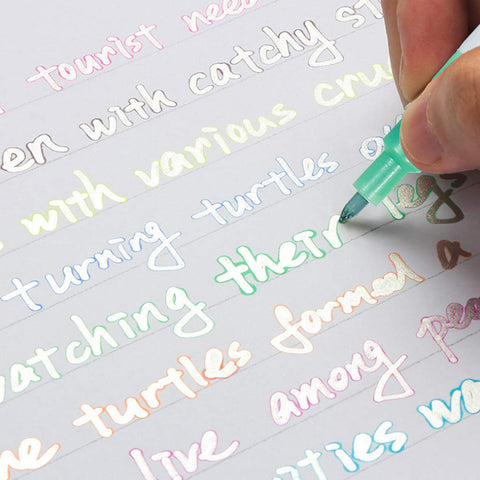 tourist need
en with catchy st
with various cru
turning turtles ou
atching their legs
ne turtles formed a
live among pea
ities wo